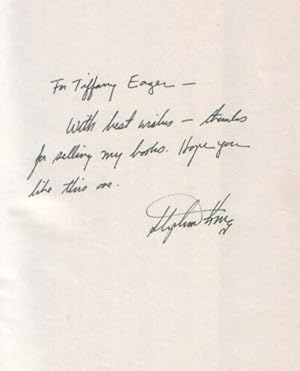 For Tiffany Eager —
With best wishes — thanks
for selling my books. Hope you
like this one.
Stephen King